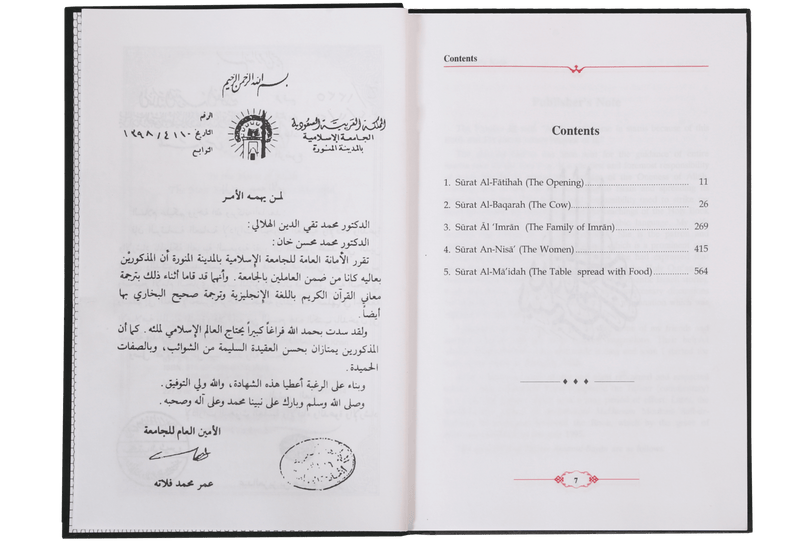 بسم الله الرحمن الرحيم
المملكة العربية السعودية
الجامعة الإسلامية
بالمدينة المنورة
الرقم
التاريخ ١١٠ / ٤ / ١٣٩٨
التوابع
لمن يهمه الأمر
الدكتور محمد تقي الدين الهلالي :
الدكتور محمد محسن خان :
تقرر الأمانة العامة للجامعة الإسلامية بالمدينة المنورة أن المذكورين
بعاليه كانا من ضمن العاملين بالجامعة . وأنهما قد قاما أثناء ذلك بترجمة
معاني القرآن الكريم باللغة الإنجليزية وترجمة صحيح البخاري بها
أيضاً .
ولقد سدت بحمد الله فراغاً كبيراً يحتاج العالم الإسلامي لملئه . كما أن
المذكورين يمتازان بحسن العقيدة السليمة من الشوائب ، وبالصفات
الحميدة .
وبناء على الرغبة أعطيا هذه الشهادة ، والله ولي التوفيق .
وصلى الله وسلم وبارك على نبينا محمد وعلى آله وصحبه .
الأمين العام للجامعة
عمر محمد فلاته
Contents
Contents
1. Sūrat Al-Fātihah (The Opening) 11
2. Sūrat Al-Baqarah (The Cow) 26
3. Sūrat Āl ‘Imrān (The Family of Imrān) 269
4. Sūrat An-Nisā’ (The Women) 415
5. Sūrat Al-Mā’idah (The Table spread with Food) 564
7